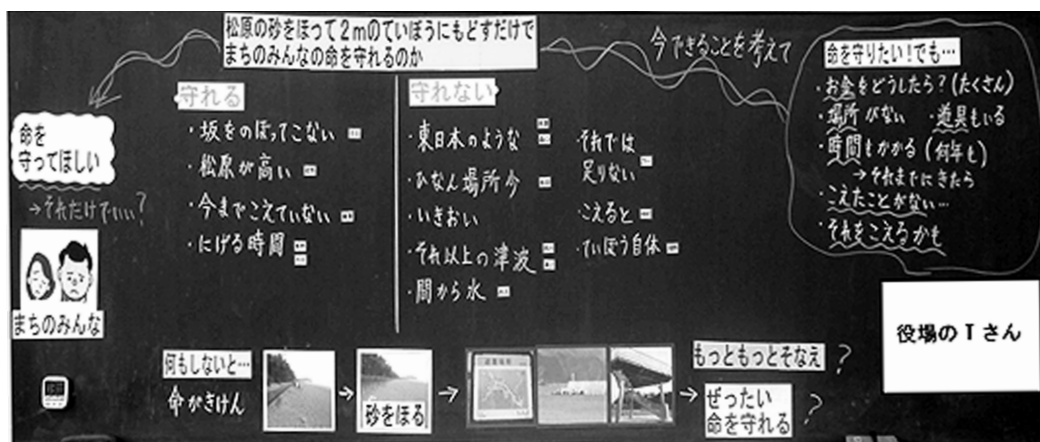 松原の砂をほって2mのていぼうにもどすだけで
まちのみんなの命を守れるのか
今できることを考えて
命を
守ってほしい
→それだけでいい?
まちのみんな
守れる
・坂をのぼってこない
・松原が高い
・今までこえていない
・にげる時間
守れない
・東日本のような
・ひなん場所今
・いきおい
・それ以上の津波
・間から水
・それでは
足りない
・こえると
・ていぼう自体
命を守りたい!でも…
・お金をどうしたら?(たくさん)
・場所がない ・道具もいる
・時間もかかる(何年も)
→それまでにきたら
・こえたことがない…
・それをこえるかも
役場のTさん
何もしないと…
命がきけん
砂をほる
もっともっとそなえ?
ぜったい
命を守れる?